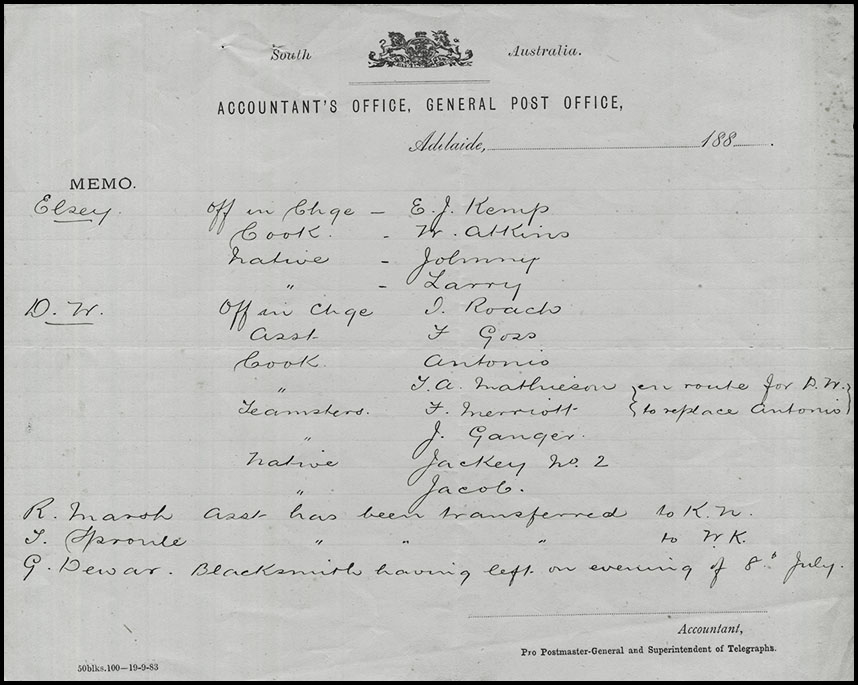 South Australia.
ACCOUNTANT'S OFFICE, GENERAL POST OFFICE,
Adelaide, 188 .
MEMO.
Elsey. Off in Chge - E. J. Kemp
Cook. - W. Atkins
Native - Johnny
" - Larry
D. W. Off in Chge I. Roach
Asst F Goss
Cook. Antonio
" T. A. Mathieson } en route for D. W. }
Teamsters. F. Merriott { to replace Antonio }
" J. Ganger.
Native Jackey No. 2
" Jacob.
R. Marsh Asst has been transferred to K. W.
T. Sproule " " " to W. K.
G. Dewar. Blacksmith having left on evening of 8th July.
Accountant,
Pro Postmaster-General and Superintendent of Telegraphs.
50blks.100—19-9-83